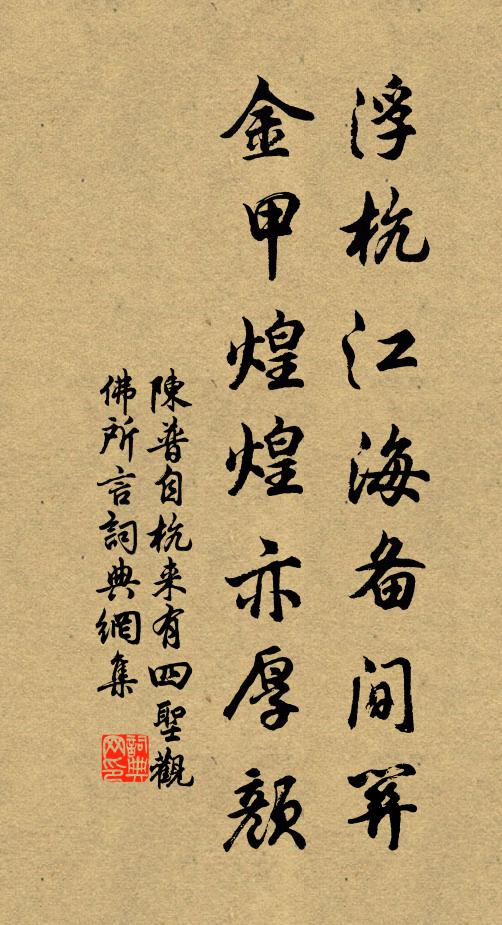 浮杭江海备间關
金甲煌煌亦厚顏
陳普自杭来有四聖觀
佛所言詞典網集
詞典网印